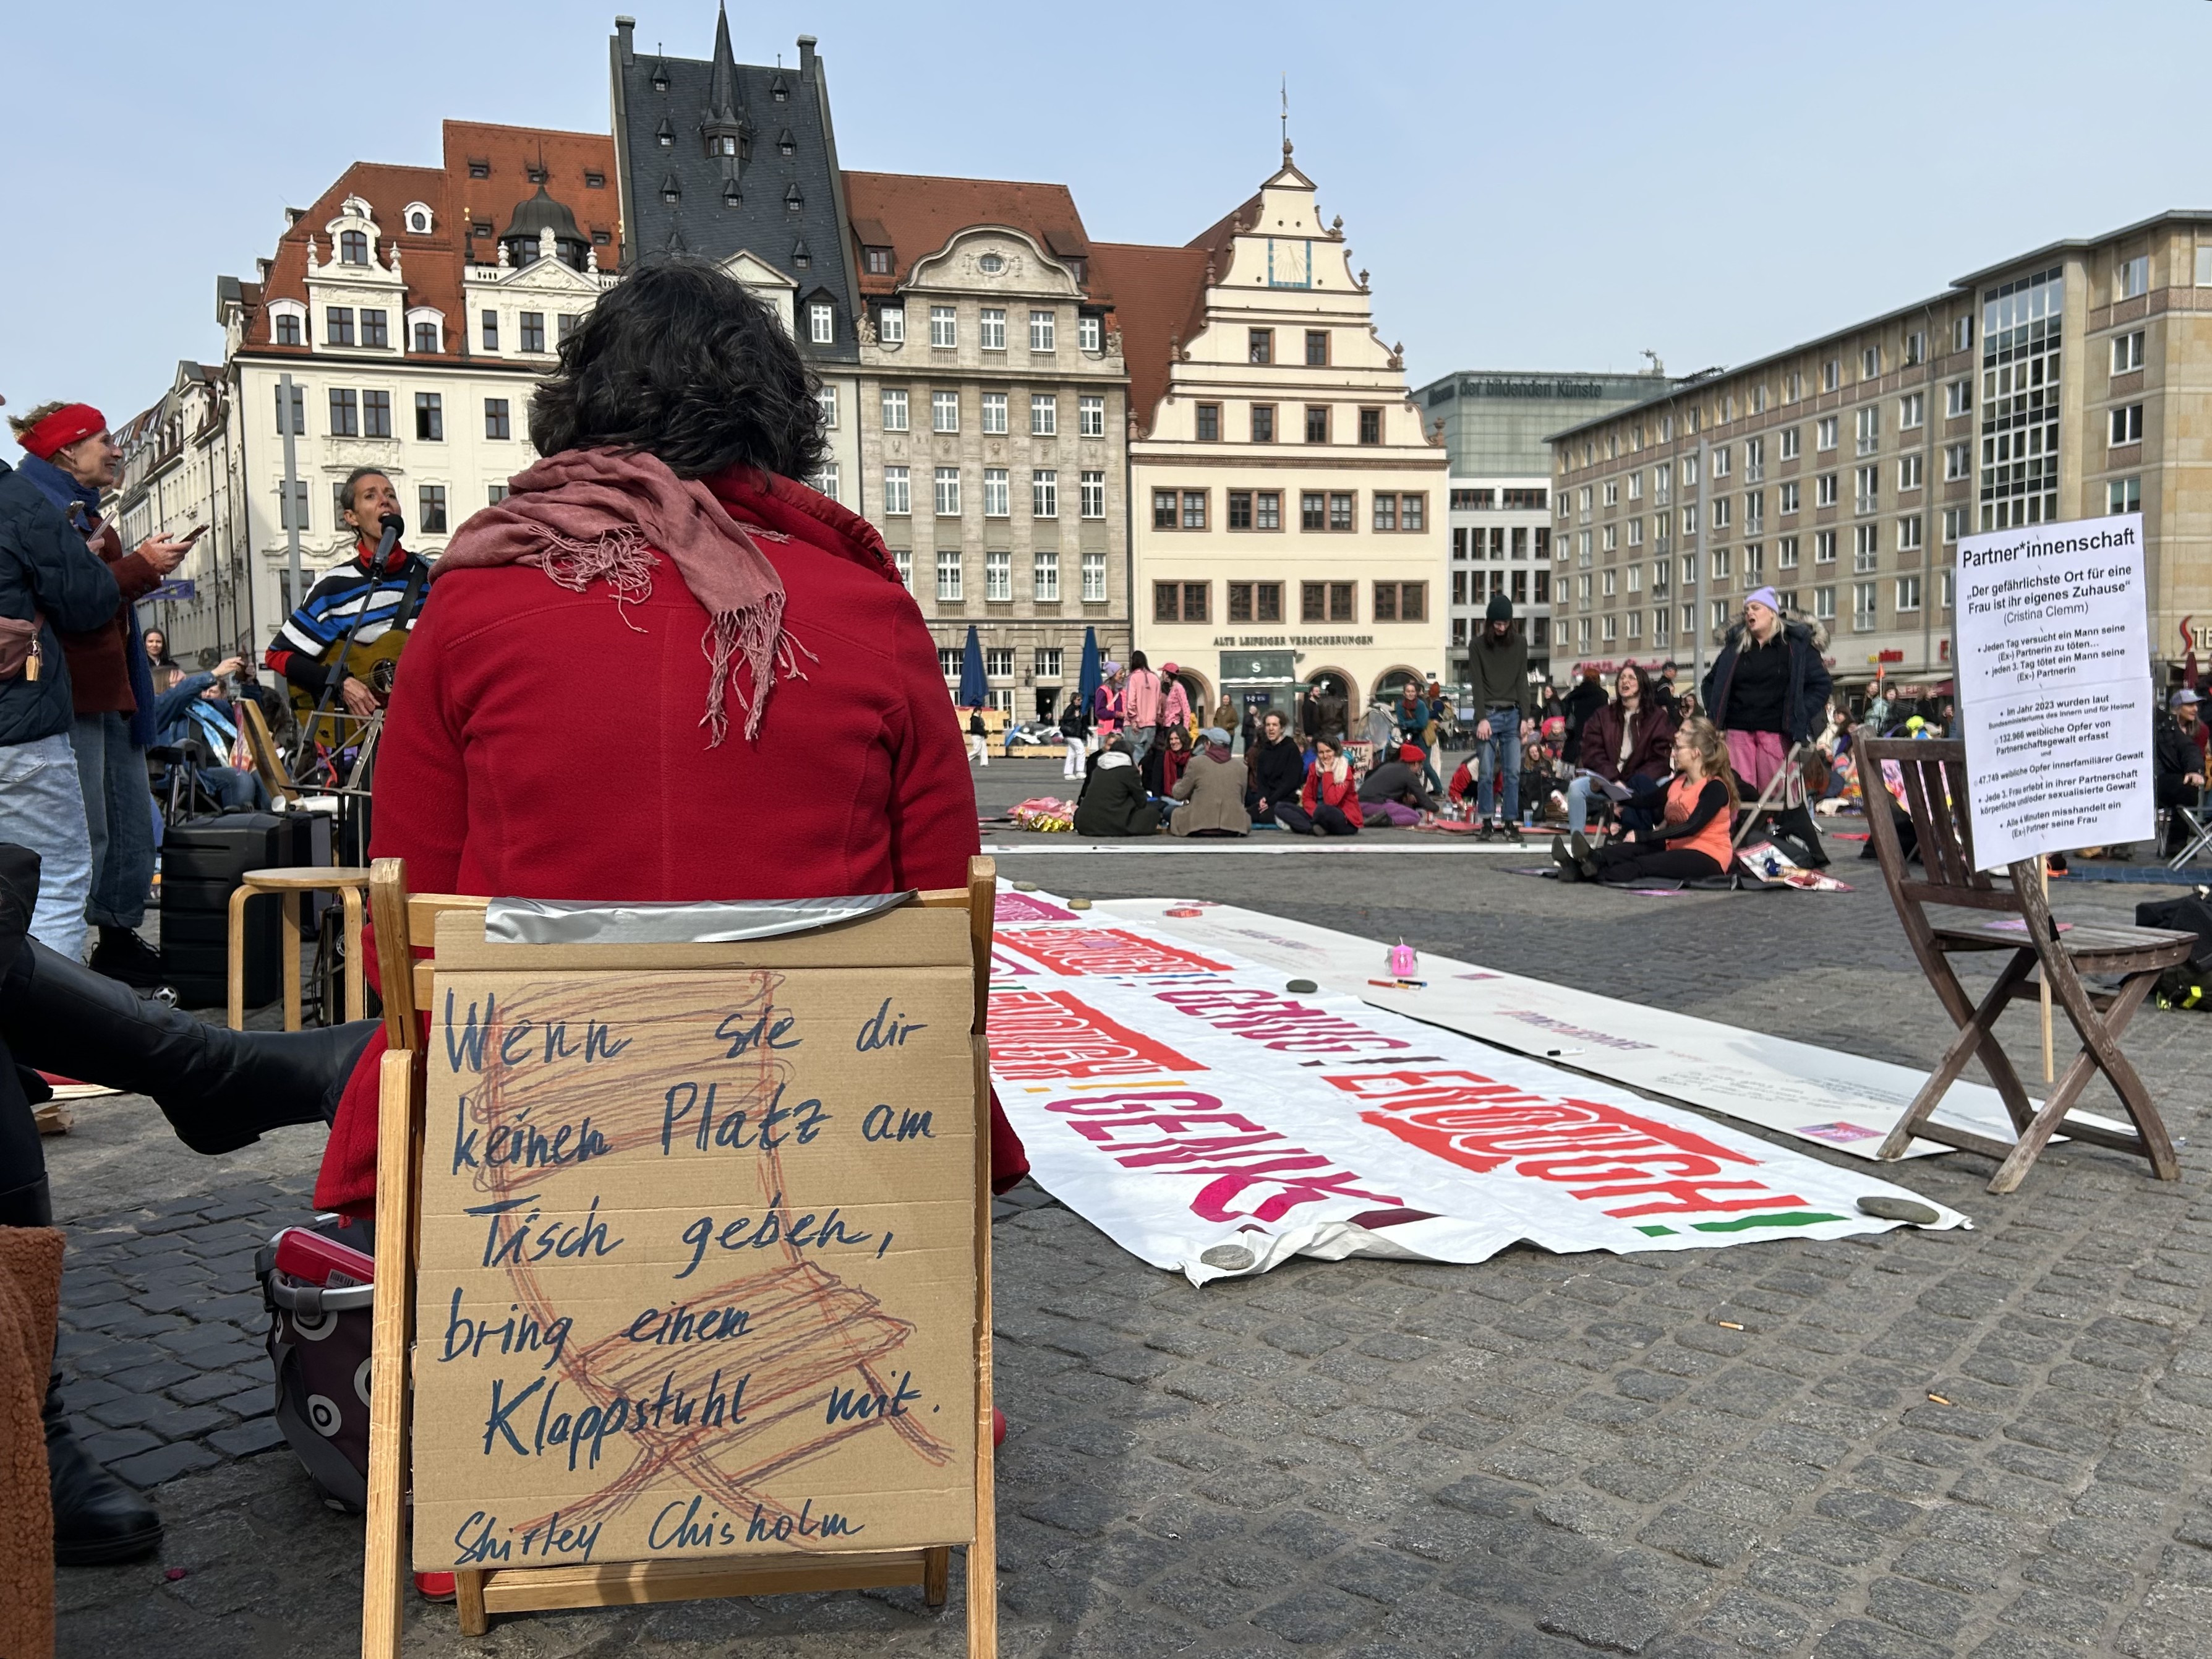 Wenn sie dir
keinen Platz am
Tisch geben,
bring einen
Klappstuhl mit.
Shirley Chisholm
Partner*innenschaft
„Der gefährlichste Ort für eine
Frau ist ihr eigenes Zuhause“
(Cristina Clemm)
• Jeden Tag versucht ein Mann seine
(Ex-) Partnerin zu töten...
• jeden 3. Tag tötet ein Mann seine
(Ex-) Partnerin
• Im Jahr 2023 wurden laut
Bundesministeriums des Innern und für Heimat
132.966 weibliche Opfer von
Partnerschaftsgewalt erfasst
und
47.749 weibliche Opfer innerfamiliärer Gewalt
• Jede 3. Frau erlebt in ihrer Partnerschaft
körperliche und/oder sexualisierte Gewalt
• Alle 4 Minuten misshandelt ein
(Ex-) Partner seine Frau
ALTE LEIPZIGER VERSICHERUNGEN
S
der bildenden Künste
ENOUGH!
GENUG!
ENOUGH!
ENOUGH!
GENUG